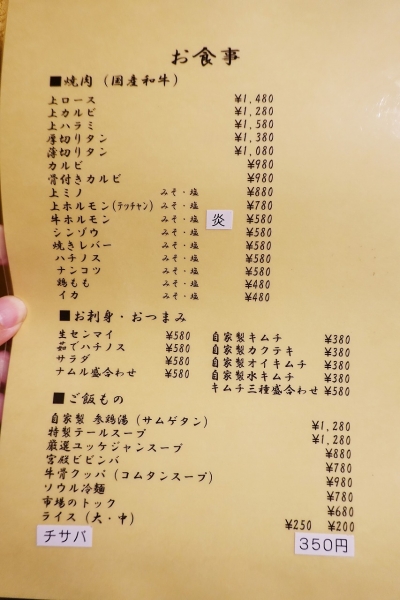 お食事
■焼肉（国産和牛）
上ロース ¥1,480
上カルビ ¥1,280
上ハラミ ¥1,580
厚切りタン ¥1,380
薄切りタン ¥1,080
カルビ ¥980
骨付きカルビ ¥980
上ミノ みそ・塩 ¥880
上ホルモン(テッチャン) みそ・塩 ¥780
牛ホルモン みそ・塩 炎 ¥580
シンゾウ みそ・塩 ¥580
焼きレバー みそ・塩 ¥580
ハチノス みそ・塩 ¥580
ナンコツ みそ・塩 ¥580
鶏もも みそ・塩 ¥480
イカ みそ・塩 ¥480
■お刺身・おつまみ
生センマイ ¥580
茹でハチノス ¥580
サラダ ¥580
ナムル盛合わせ ¥580
自家製キムチ ¥380
自家製カクテキ ¥380
自家製オイキムチ ¥380
自家製水キムチ ¥380
キムチ三種盛合わせ ¥580
■ご飯もの
自家製 参鶏湯（サムゲタン） ¥1,280
特製テールスープ ¥1,280
厳選ユッケジャンスープ ¥880
宮殿ビビンバ ¥780
牛骨クッパ（コムタンスープ） ¥980
ソウル冷麺 ¥780
市場のトック ¥680
ライス（大・中） ¥250 ¥200
チサバ 350円